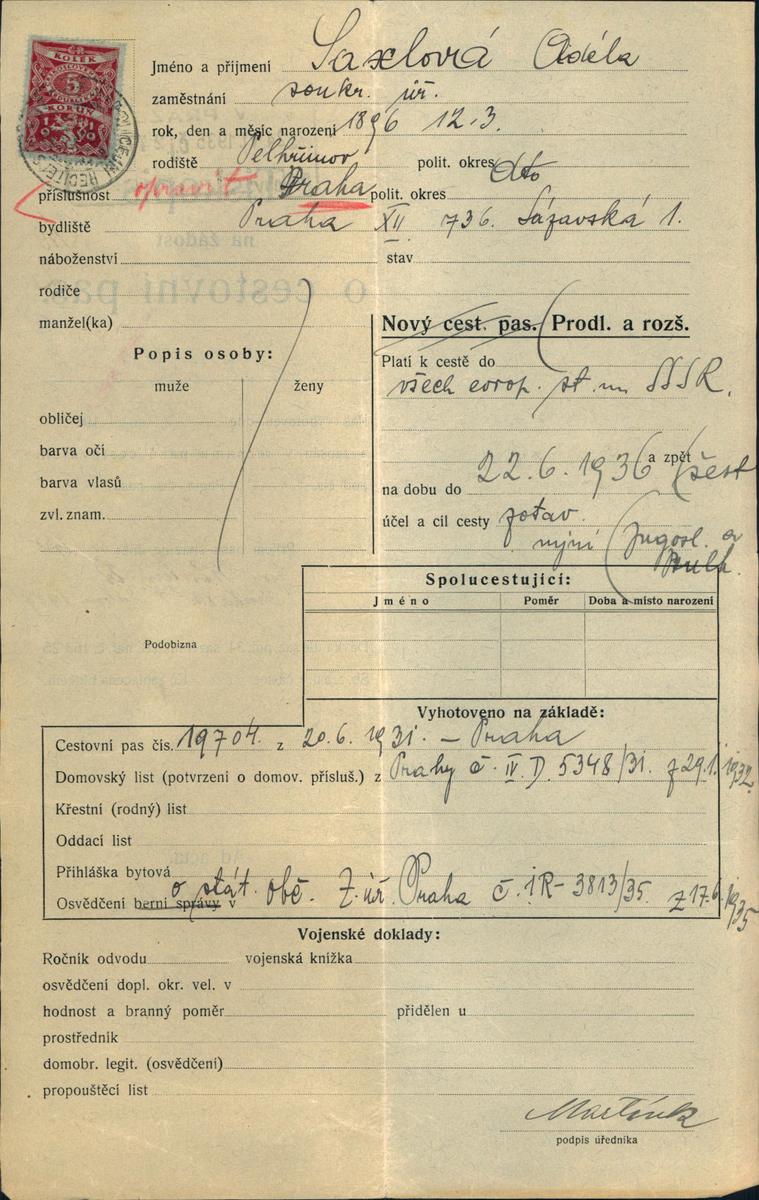 ČR
KOLEK
5
KORUN
Jméno a přijmení Saxlová Adéla
zaměstnání soukr. úř.
rok, den a měsíc narození 1896 12.3.
rodiště Pelhřimov polit. okres dto
příslušnost opravit Praha polit. okres
bydliště Praha XII 736. Sázavská 1.
náboženství stav
rodiče
manžel(ka)
Nový cest. pas. Prodl. a rozš.
Popis osoby:
muže ženy
obličej
barva očí
barva vlasů
zvl. znam.
Platí k cestě do
všech evrop. st. m SSSR.
a zpět
na dobu do 22.6.1936 šest
účel a cíl cesty zotav.
nyní Jugosl. a
Bulh.
Podobizna
Spolucestující:
Jméno Poměr Doba a místo narození
Vyhotoveno na základě:
Cestovní pas čís. 19704. z 20.6.1931. – Praha
Domovský list (potvrzení o domov. přísluš.) z Prahy č. IV. D. 5348/31. z 29.1.1932.
Křestní (rodný) list
Oddací list
Přihláška bytová
o stát. obč. Z. úř. Praha č. IR-3813/35. z 17.6.1935
Osvědčení berní správy v
Vojenské doklady:
Ročník odvodu vojenská knížka
osvědčení dopl. okr. vel. v
hodnost a branný poměr přidělen u
prostředník
domobr. legit. (osvědčení)
propouštěcí list
Martínk
podpis úředníka